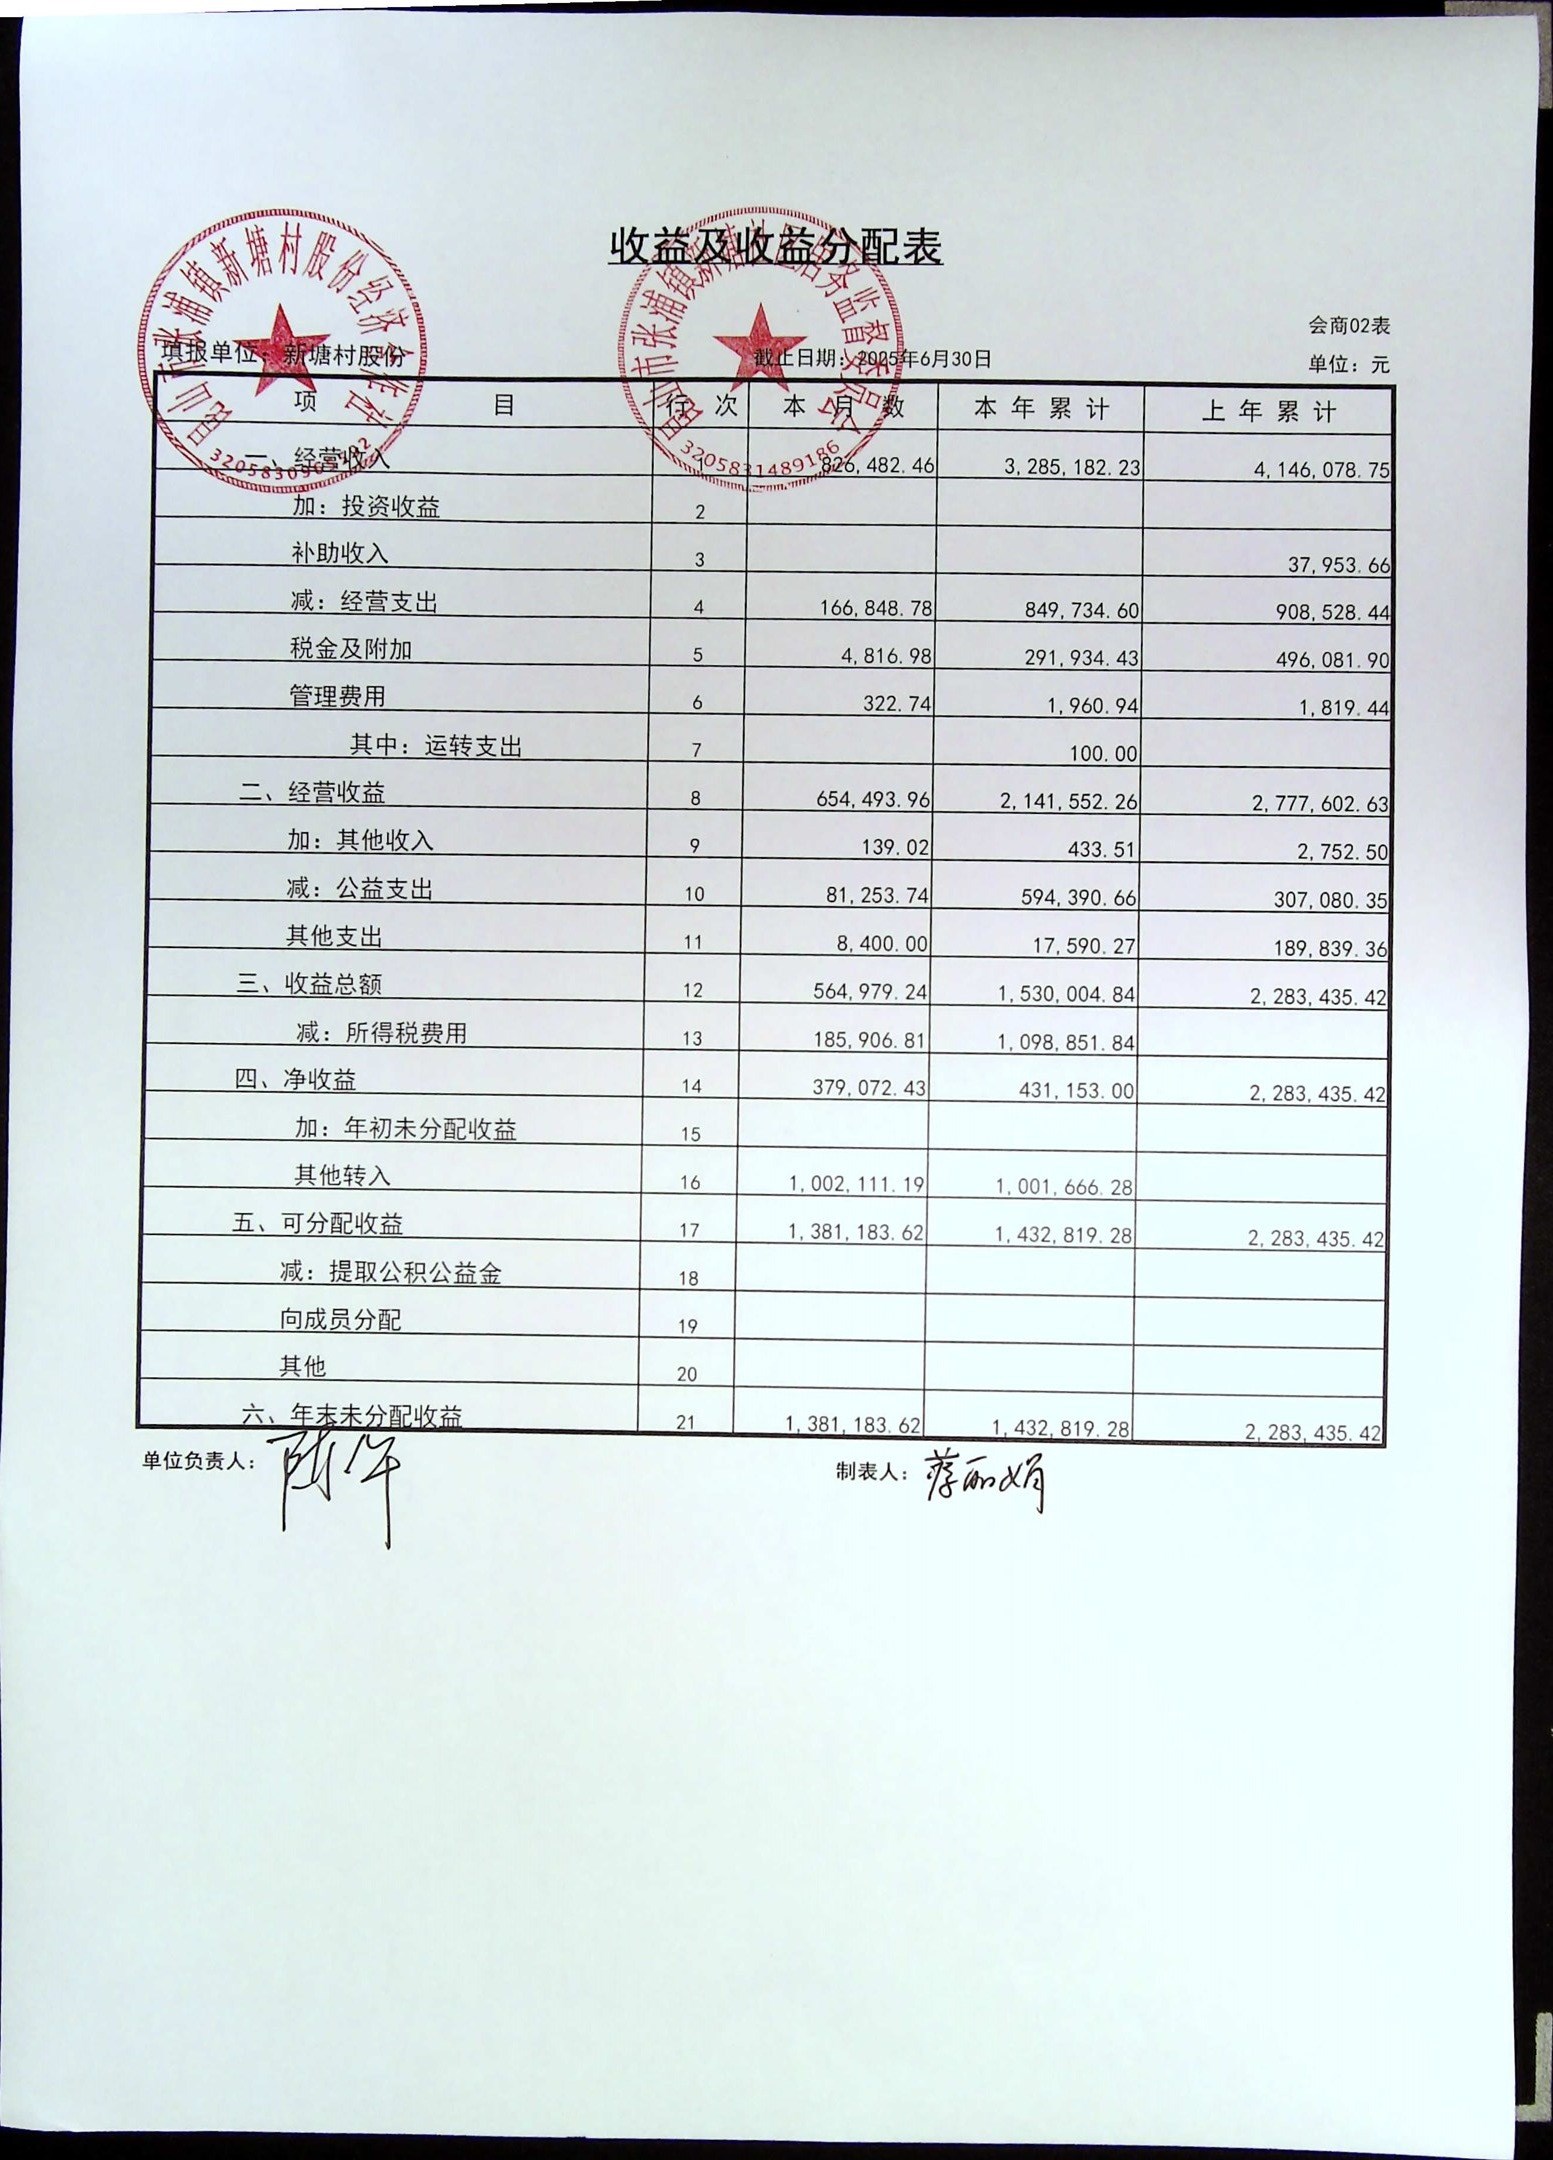 收益及收益分配表
会商02表
填报单位：新塘村股份 截止日期：2025年6月30日 单位：元
项 目 行 次 本 月 数 本 年 累 计 上 年 累 计
一、经营收入 1 826,482.46 3,285,182.23 4,146,078.75
加：投资收益 2
补助收入 3 37,953.66
减：经营支出 4 166,848.78 849,734.60 908,528.44
税金及附加 5 4,816.98 291,934.43 496,081.90
管理费用 6 322.74 1,960.94 1,819.44
其中：运转支出 7 100.00
二、经营收益 8 654,493.96 2,141,552.26 2,777,602.63
加：其他收入 9 139.02 433.51 2,752.50
减：公益支出 10 81,253.74 594,390.66 307,080.35
其他支出 11 8,400.00 17,590.27 189,839.36
三、收益总额 12 564,979.24 1,530,004.84 2,283,435.42
减：所得税费用 13 185,906.81 1,098,851.84
四、净收益 14 379,072.43 431,153.00 2,283,435.42
加：年初未分配收益 15
其他转入 16 1,002,111.19 1,001,666.28
五、可分配收益 17 1,381,183.62 1,432,819.28 2,283,435.42
减：提取公积公益金 18
向成员分配 19
其他 20
六、年末未分配收益 21 1,381,183.62 1,432,819.28 2,283,435.42
单位负责人： 制表人：蒋丽娟
昆山市张浦镇新塘村股份经济合作社
昆山市张浦镇新塘社区居务监督委员会
3205831489186